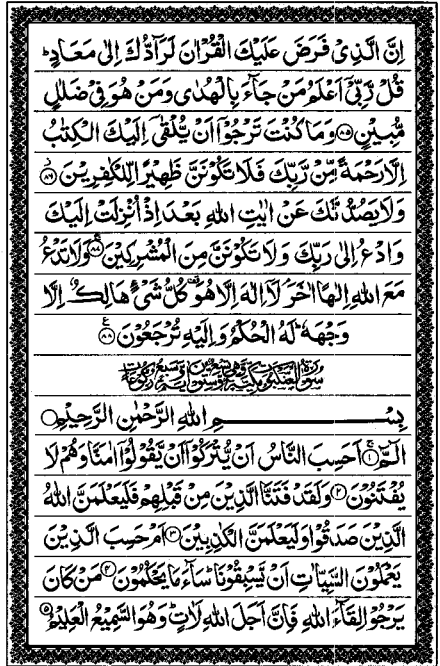 اِنَّ الَّذِیْ فَرَضَ عَلَیْكَ الْقُرْاٰنَ لَرَآدُّكَ اِلٰی مَعَادٍؕ
قُلْ رَّبِّیْۤ اَعْلَمُ مَنْ جَآءَ بِالْهُدٰی وَمَنْ هُوَ فِیْ ضَلٰلٍ
مُّبِیْنٍ ۝۸۵ وَمَا كُنْتَ تَرْجُوْۤا اَنْ یُّلْقٰۤی اِلَیْكَ الْكِتٰبُ
اِلَّا رَحْمَةً مِّنْ رَّبِّكَ فَلَا تَكُوْنَنَّ ظَهِیْرًا لِّلْكٰفِرِیْنَ ۝۸۶
وَلَا یَصُدُّنَّكَ عَنْ اٰیٰتِ اللّٰهِ بَعْدَ اِذْ اُنْزِلَتْ اِلَیْكَ
وَادْعُ اِلٰی رَبِّكَ وَلَا تَكُوْنَنَّ مِنَ الْمُشْرِكِیْنَ ۝۸۷ وَلَا تَدْعُ
مَعَ اللّٰهِ اِلٰهًا اٰخَرَ لَاۤ اِلٰهَ اِلَّا هُوَ كُلُّ شَیْءٍ هَالِكٌ اِلَّا
وَجْهَهٗؕ لَهُ الْحُكْمُ وَاِلَیْهِ تُرْجَعُوْنَ ۝۸۸
سورة العنكبوت مكية وهی تسع وستون اية وسبع ركوعات
بِسْمِ اللّٰهِ الرَّحْمٰنِ الرَّحِیْمِ
الٓمّٓ ۝۱ اَحَسِبَ النَّاسُ اَنْ یُّتْرَكُوْۤا اَنْ یَّقُوْلُوْۤا اٰمَنَّا وَهُمْ لَا
یُفْتَنُوْنَ ۝۲ وَلَقَدْ فَتَنَّا الَّذِیْنَ مِنْ قَبْلِهِمْ فَلَیَعْلَمَنَّ اللّٰهُ
الَّذِیْنَ صَدَقُوْا وَلَیَعْلَمَنَّ الْكٰذِبِیْنَ ۝۳ اَمْ حَسِبَ الَّذِیْنَ
یَعْمَلُوْنَ السَّیِّاٰتِ اَنْ یَّسْبِقُوْنَاؕ سَآءَ مَا یَحْكُمُوْنَ ۝۴ مَنْ كَانَ
یَرْجُوْا لِقَآءَ اللّٰهِ فَاِنَّ اَجَلَ اللّٰهِ لَاٰتٍؕ وَهُوَ السَّمِیْعُ الْعَلِیْمُ ۝۵